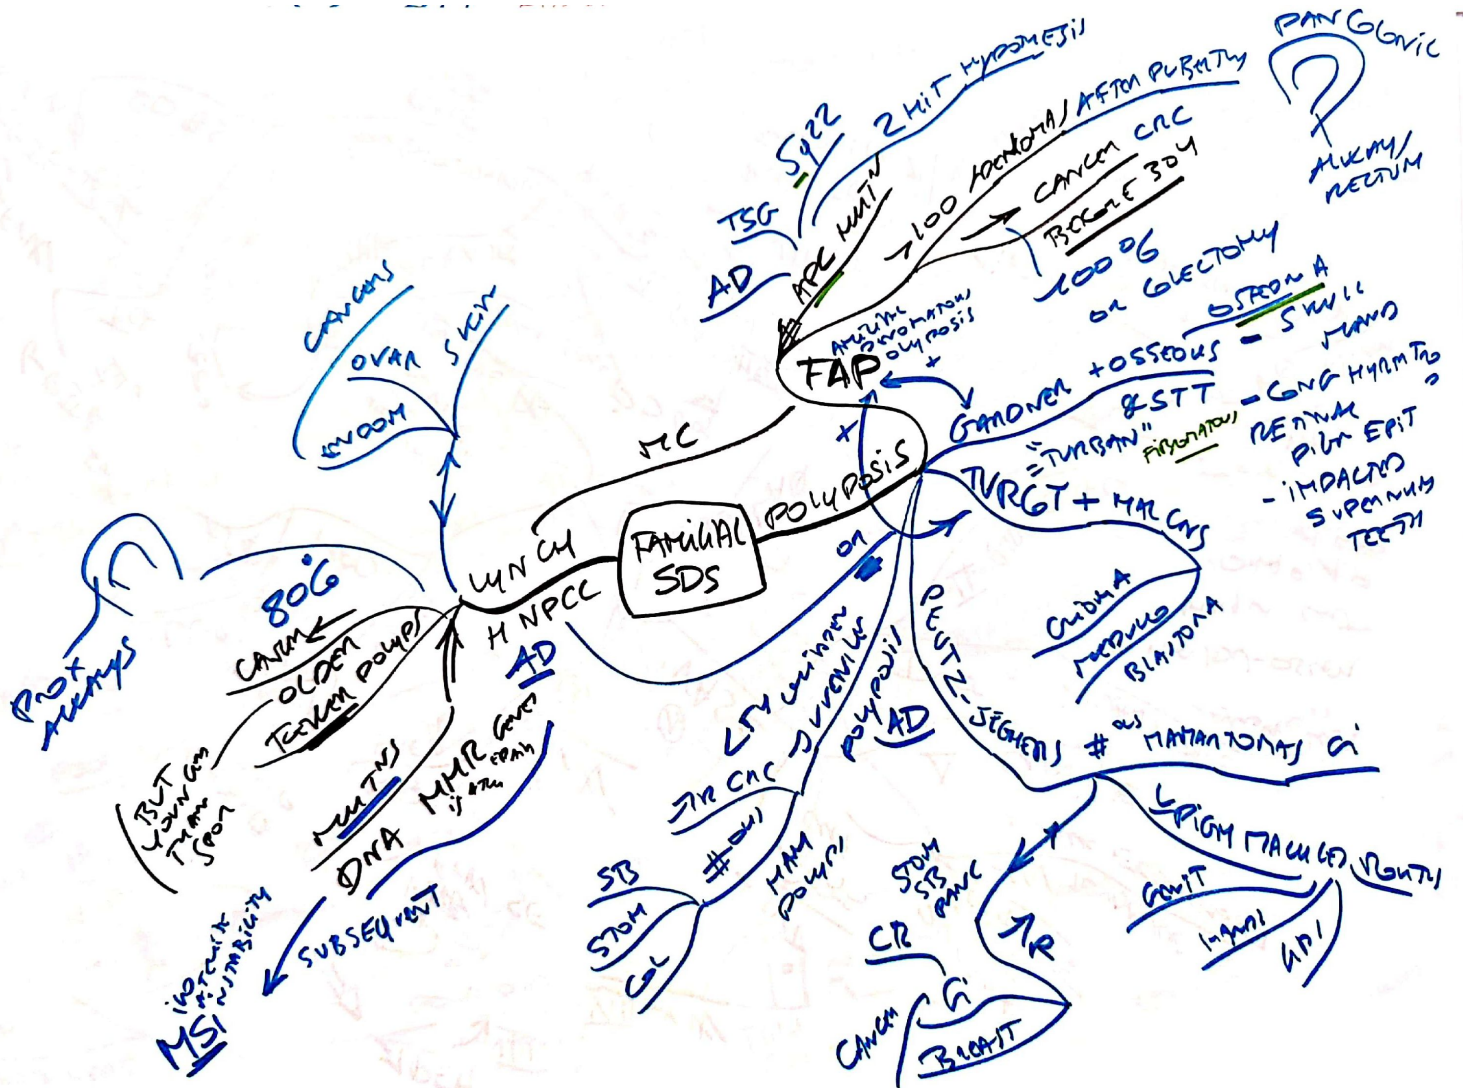 FAMILIAL
SDS
POLYPOSIS
MC
LYNCH
HNPCC
AD
FAP
FAMILIAL
ADENOMATOUS
POLYPOSIS
APC MUTN
AD
TSG
5q22
2 HIT HYPOTHESIS
>100 ADENOMAS AFTER PUBERTY
→ CANCER CRC
BEFORE 30Y
100%
OR COLECTOMY
PANCOLONIC
ALWAYS
RECTUM
GARDNER + OSSEOUS
& STT
OSTEOMA
- SKULL
MAND
= "TURBAN"
FIBROMATOUS
- CONG HYPERTRO
RETINAL
PIGM EPIT
- IMPACTED
SUPERNUM
TEETH
TURCOT + MAL CNS
GLIOMA
MEDULLO
BLASTOMA
+
+
OR
PEUTZ-JEGHERS
#OUS HAMARTOMAS GI
PIGM MACULES MOUTH
GENIT
HANDS
LIPS
↑R
STOM
SB
PANC
CR
GI
CANCER
BREAST
JUVENILE
POLYPOSIS
AD
↑R CRC
#OUS
HAM
POLYPS
SB
STOM
COL
CANCERS
OVAR
SKIN
ENDOM
80%
PROX
ALWAYS
CANCER
OLDER
FEWER POLYPS
BUT
YOUNGER
THAN
SPOR
MUTNS
DNA MMR GENES
SUBSEQUENT
INSTABILITY
MSI